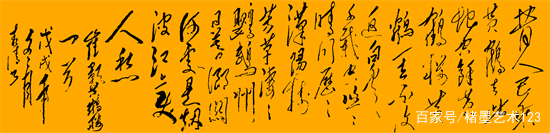 昔人已乘
黄鹤去此
地空余黄
鹤楼黄
鹤一去不复
返白云
千载空悠悠
晴川历历
汉阳树
芳草萋萋
鹦鹉洲
日暮乡关
何处是烟
波江上使
人愁
崔颢黄鹤楼
一首
戊戌年
百家号/楮墨艺术123